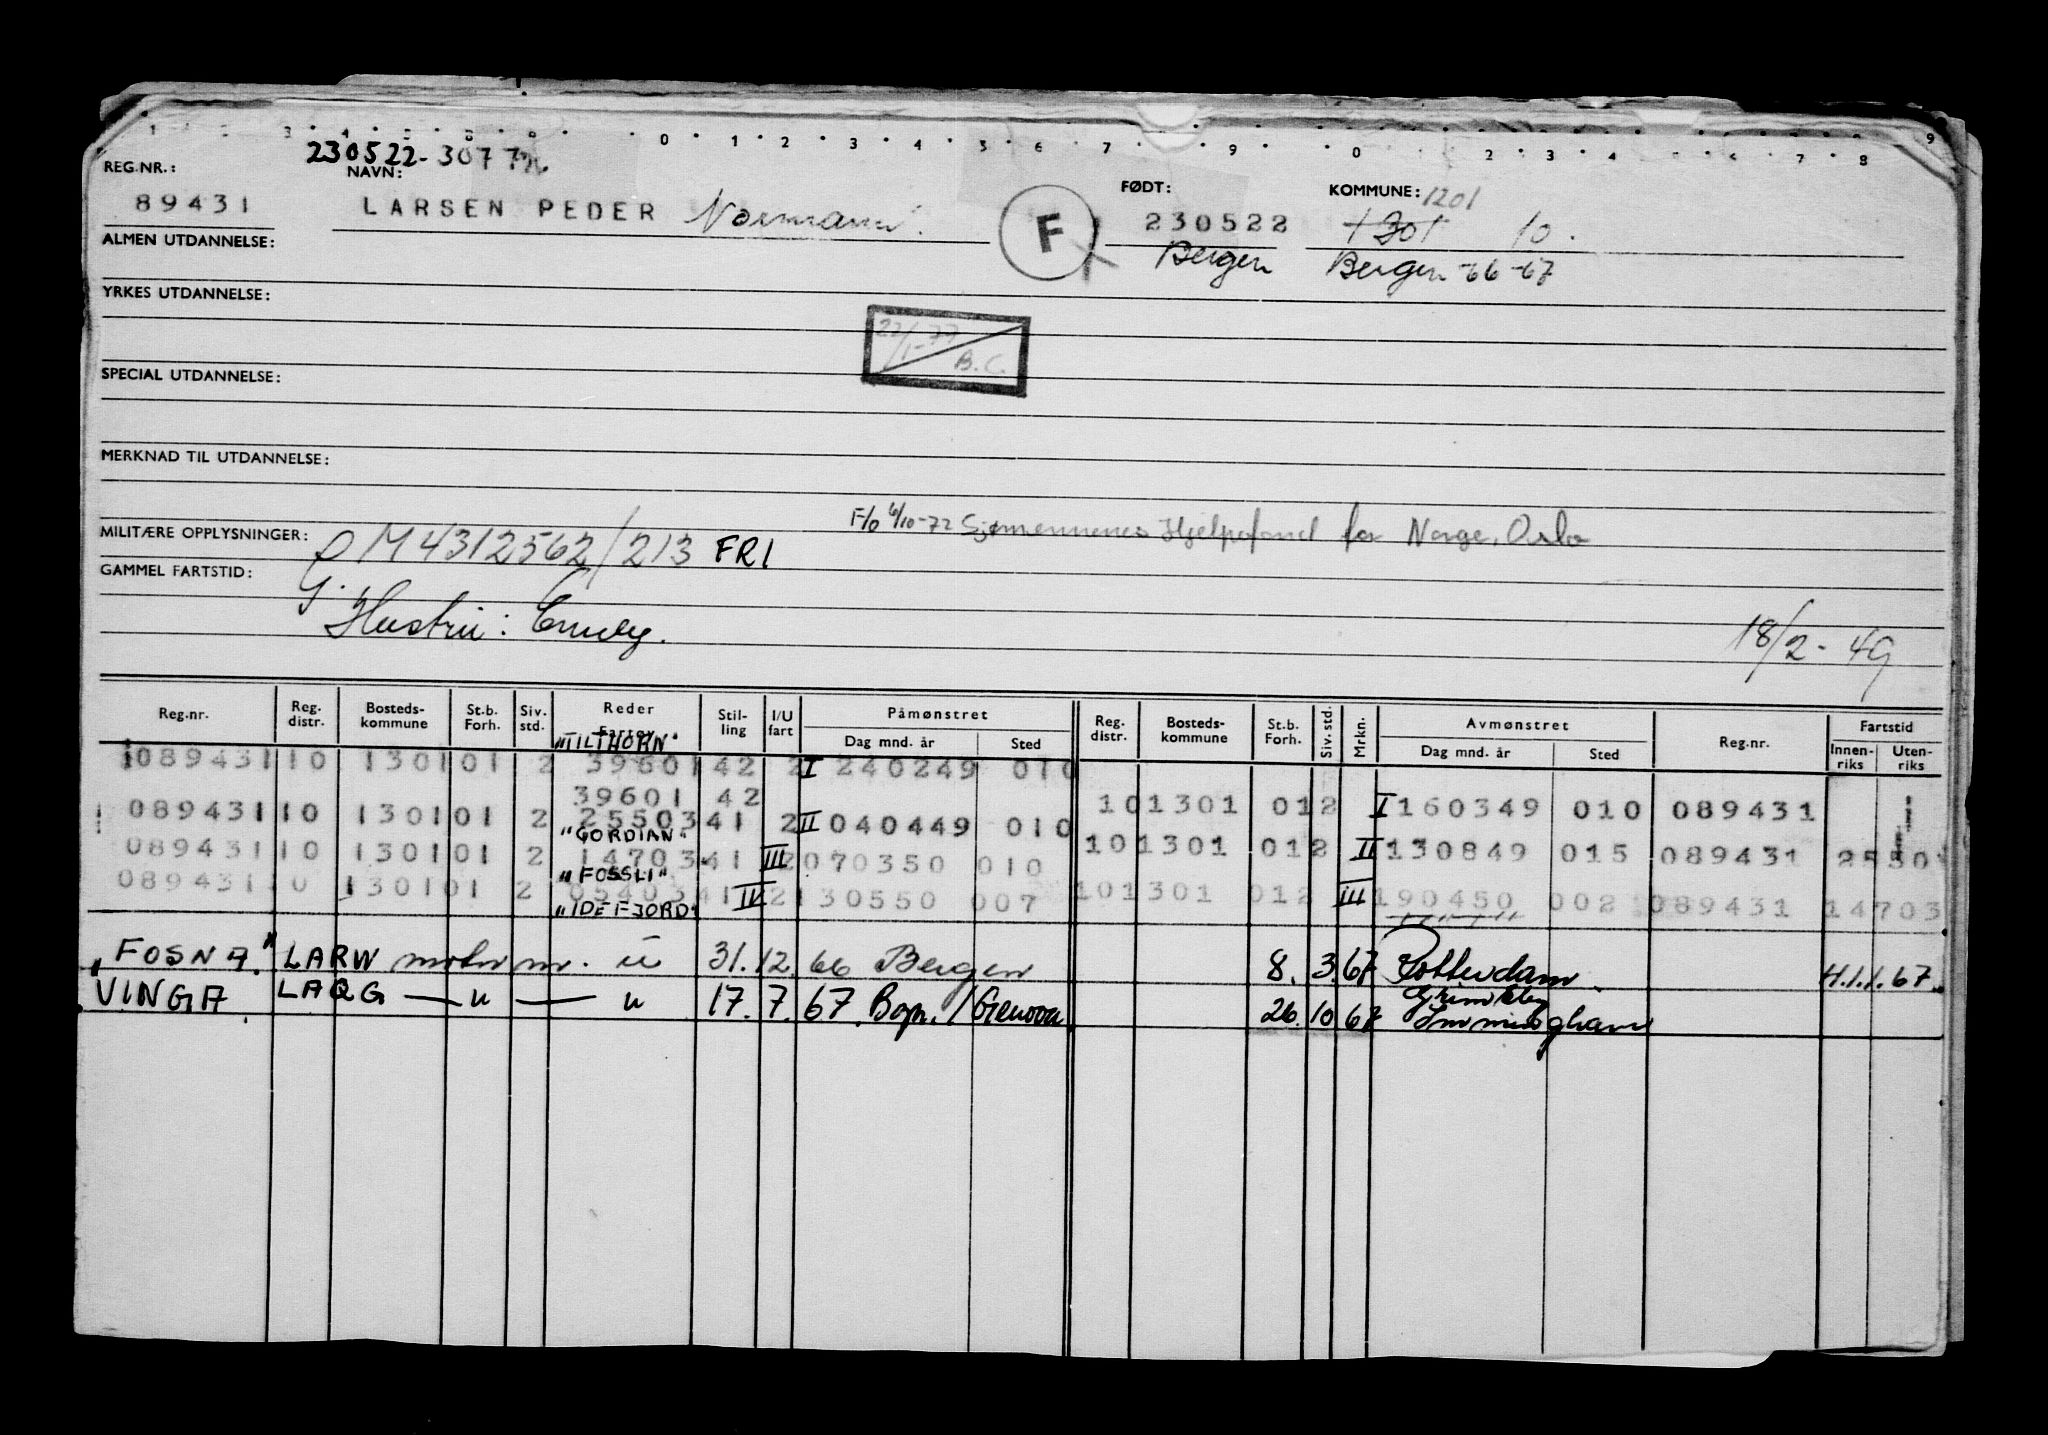 230522-307
REG.NR.: NAVN: FØDT: KOMMUNE: 1201
89431 LARSEN PEDER Normann. F 230522 1301 10.
ALMEN UTDANNELSE: Bergen Bergen -66-67
YRKES UTDANNELSE:
22/1-77 B.C.
SPECIAL UTDANNELSE:
MERKNAD TIL UTDANNELSE:
F/o 6/10-72 Sjømennenes Hjelpefond for Norge, Oslo
MILITÆRE OPPLYSNINGER: M4312562/213 FRI
GAMMEL FARTSTID:
Hustru: Emely.
18/2-49
Reg.nr. Reg. distr. Bosteds-kommune St.b. Forh. Siv. std. Reder Fartøy Stil-ling I/U fart Påmønstret Reg. distr. Bosteds-kommune St.b. Forh. Siv.std. Mrkn. Avmønstret Reg.nr. Fartstid
Dag mnd. år Sted Dag mnd. år Sted Innen-riks Uten-riks
"TILTHORN"
089431 10 1301 01 2 39601 42 2 I 240249 010
39601 42 10 1301 01 2 I 160349 010 089431
089431 10 1301 01 2 25503 41 2 II 040449 010
"GORDIAN" 10 1301 01 2 II 130849 015 089431 25501
089431 10 1301 01 2 14703 41 III 2 070350 010
"FOSSLI" 10 1301 01 2 III 190450 002 089431 14703
089431 10 1301 01 2 05403 41 IV 2 130550 007
"IDEFJORD"
"FOSNA" LARW motor m. u 31.12.66 Bergen 8.3.67 Rotterdam. H.1.1.67.
VINGA LAQG — " — u 17.7.67 Bgn./Genova 26.10.67 Grimsby Immingham